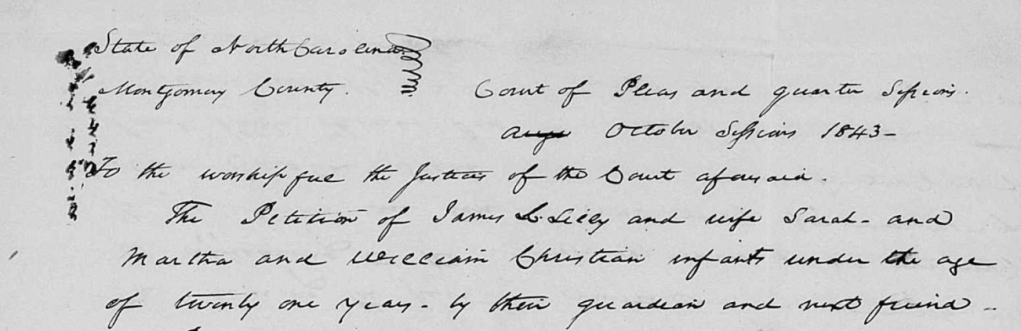 State of North Carolina
Montgomery County. Court of Pleas and quarter Sessions.
October Sessions 1843-
To the worshipful the Justices of the Court aforesaid.
The Petition of James L. Lilly and wife Sarah - and
Martha and William Christian infants under the age
of twenty one years - by their guardian and next friend -